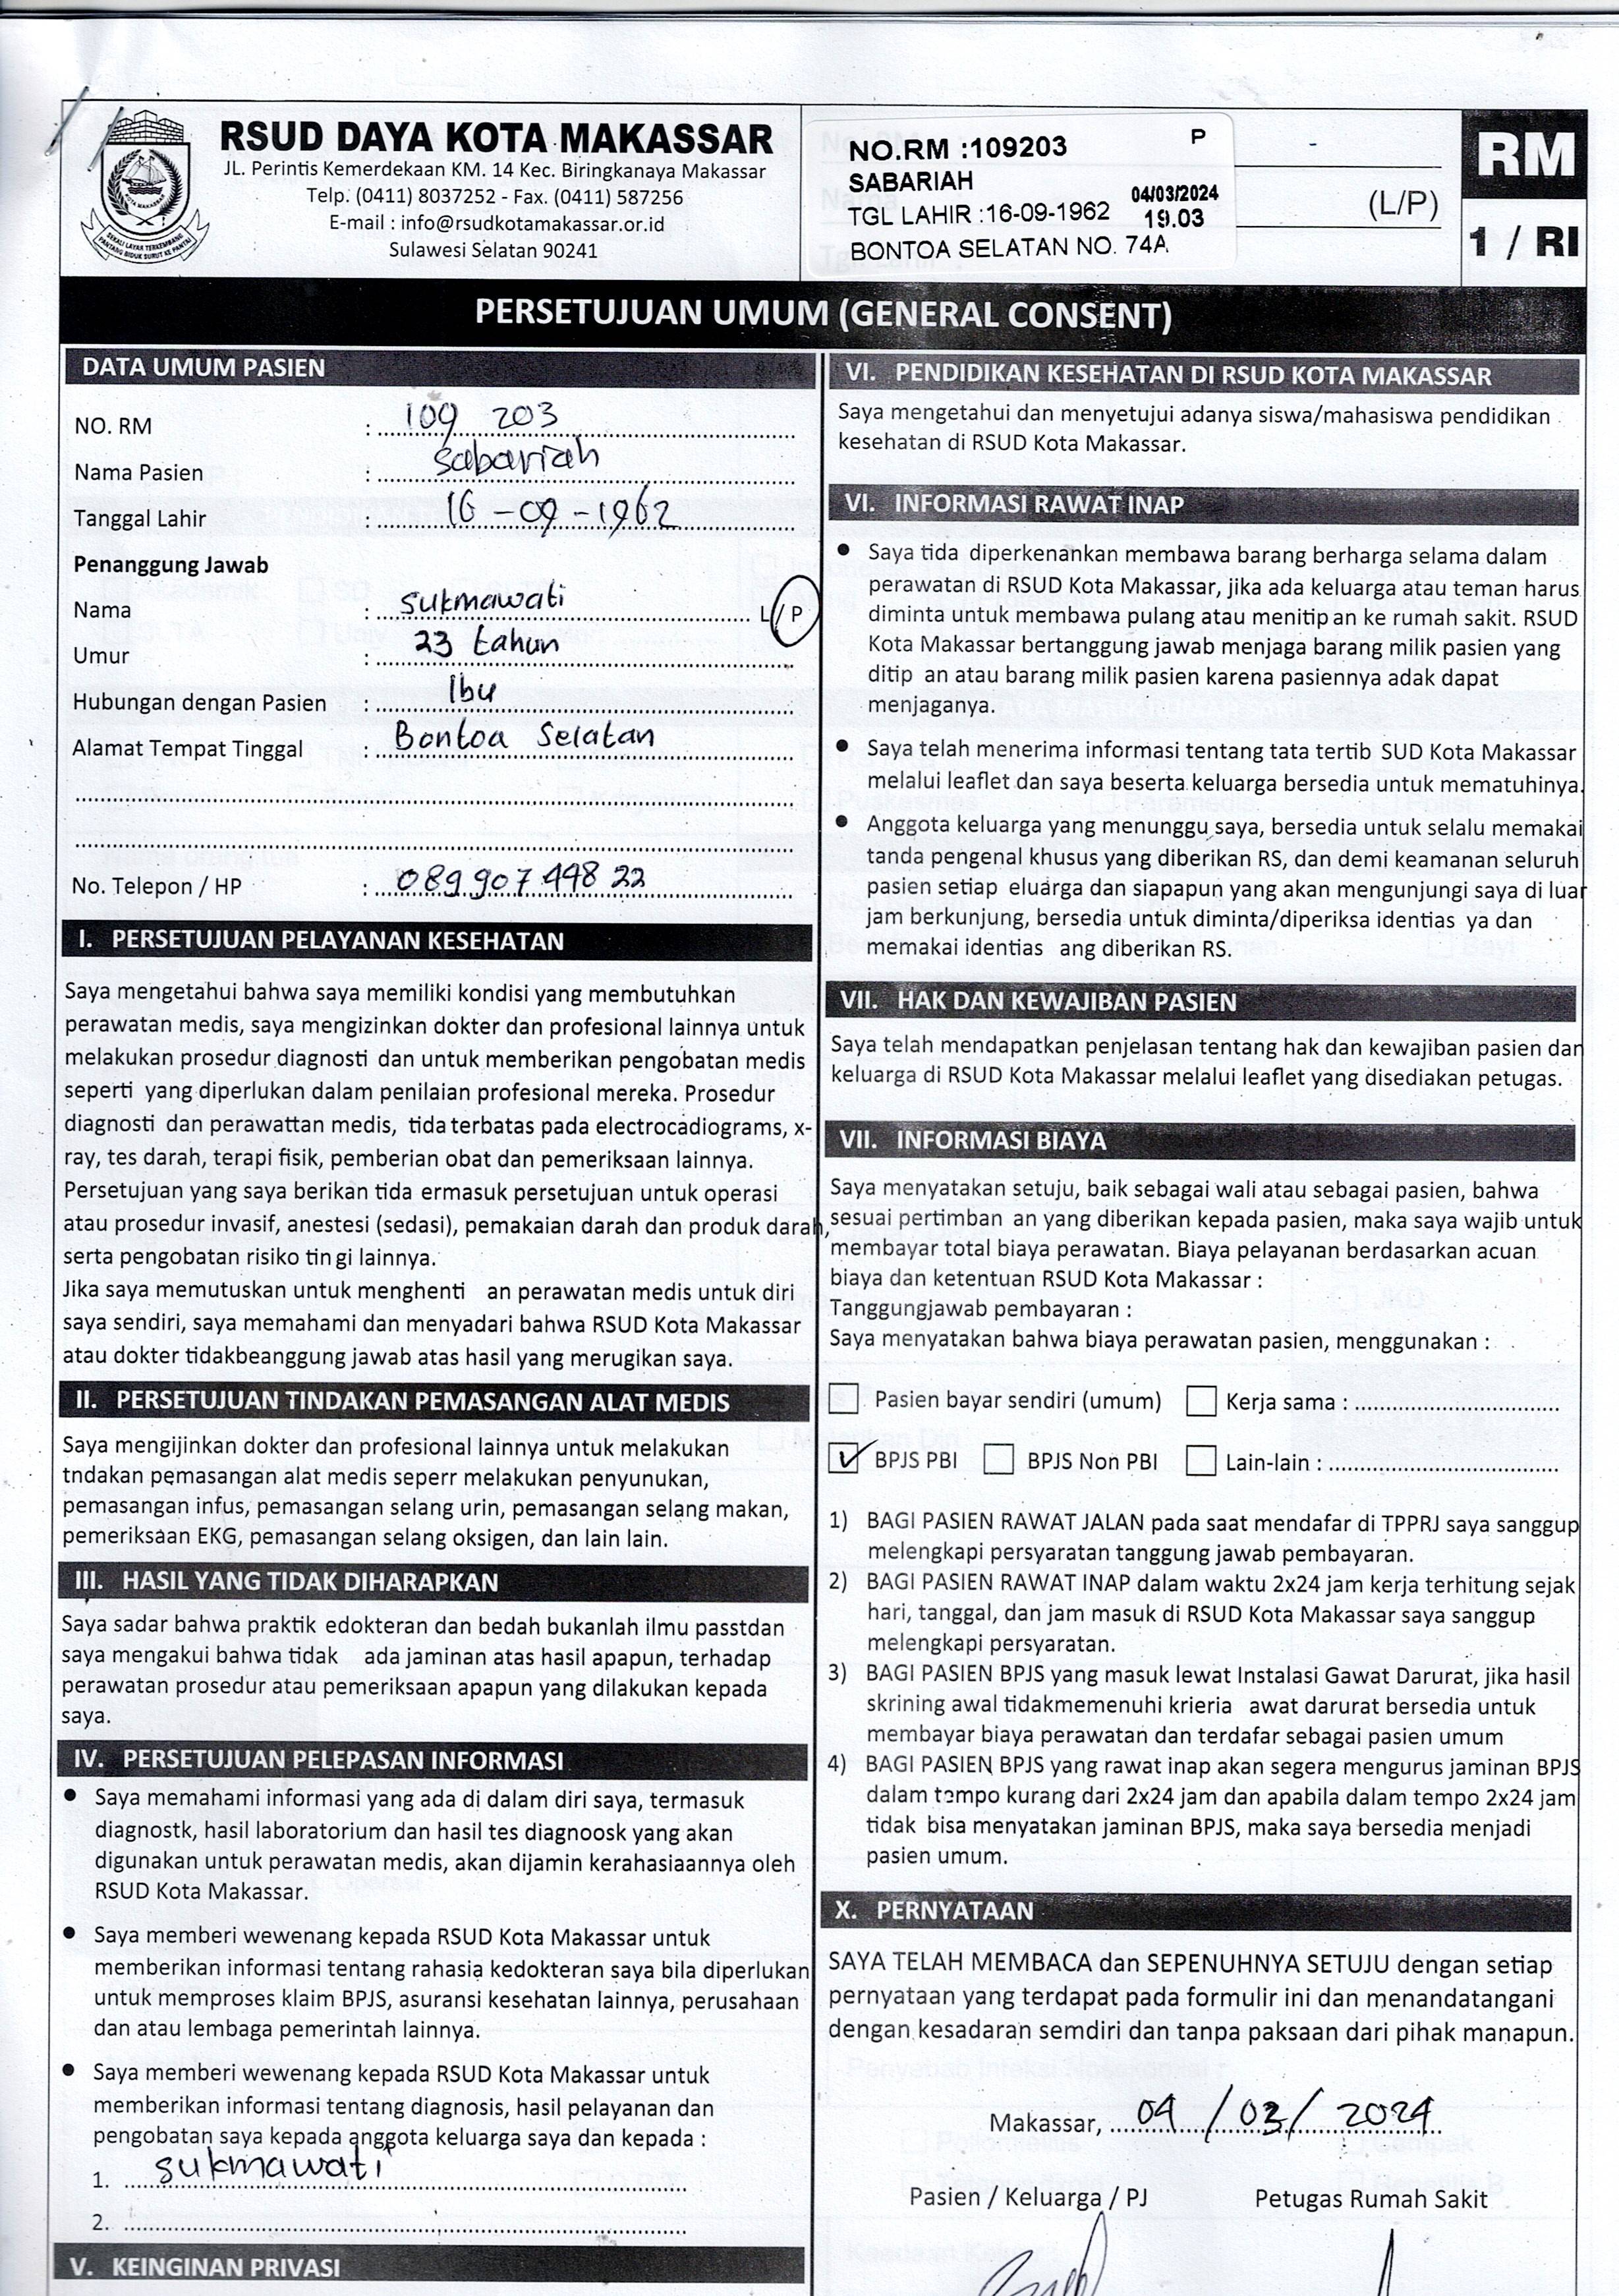 RSUD DAYA KOTA MAKASSAR
JL. Perintis Kemerdekaan KM. 14 Kec. Biringkanaya Makassar
Telp. (0411) 8037252 - Fax. (0411) 587256
E-mail : info@rsudkotamakassar.or.id
Sulawesi Selatan 90241
NO.RM :109203 P
SABARIAH
TGL LAHIR :16-09-1962 04/03/2024 19.03
BONTOA SELATAN NO. 74A
(L/P)
RM
1 / RI
PERSETUJUAN UMUM (GENERAL CONSENT)
DATA UMUM PASIEN
NO. RM : 109 203
Nama Pasien : Sabariah
Tanggal Lahir : 16-09-1962
Penanggung Jawab
Nama : Sukmawati L/P
Umur : 23 tahun
Hubungan dengan Pasien : Ibu
Alamat Tempat Tinggal : Bontoa Selatan
No. Telepon / HP : 089 907 448 22
I. PERSETUJUAN PELAYANAN KESEHATAN
Saya mengetahui bahwa saya memiliki kondisi yang membutuhkan
perawatan medis, saya mengizinkan dokter dan profesional lainnya untuk
melakukan prosedur diagnosti dan untuk memberikan pengobatan medis
seperti yang diperlukan dalam penilaian profesional mereka. Prosedur
diagnosti dan perawattan medis, tida terbatas pada electrocadiograms, x-
ray, tes darah, terapi fisik, pemberian obat dan pemeriksaan lainnya.
Persetujuan yang saya berikan tida ermasuk persetujuan untuk operasi
atau prosedur invasif, anestesi (sedasi), pemakaian darah dan produk darah,
serta pengobatan risiko tin gi lainnya.
Jika saya memutuskan untuk menghenti an perawatan medis untuk diri
saya sendiri, saya memahami dan menyadari bahwa RSUD Kota Makassar
atau dokter tidakbeanggung jawab atas hasil yang merugikan saya.
II. PERSETUJUAN TINDAKAN PEMASANGAN ALAT MEDIS
Saya mengijinkan dokter dan profesional lainnya untuk melakukan
tndakan pemasangan alat medis seperr melakukan penyunukan,
pemasangan infus, pemasangan selang urin, pemasangan selang makan,
pemeriksaan EKG, pemasangan selang oksigen, dan lain lain.
III. HASIL YANG TIDAK DIHARAPKAN
Saya sadar bahwa praktik edokteran dan bedah bukanlah ilmu passtdan
saya mengakui bahwa tidak ada jaminan atas hasil apapun, terhadap
perawatan prosedur atau pemeriksaan apapun yang dilakukan kepada
saya.
IV. PERSETUJUAN PELEPASAN INFORMASI
• Saya memahami informasi yang ada di dalam diri saya, termasuk
diagnostk, hasil laboratorium dan hasil tes diagnoosk yang akan
digunakan untuk perawatan medis, akan dijamin kerahasiaannya oleh
RSUD Kota Makassar.
• Saya memberi wewenang kepada RSUD Kota Makassar untuk
memberikan informasi tentang rahasia kedokteran saya bila diperlukan
untuk memproses klaim BPJS, asuransi kesehatan lainnya, perusahaan
dan atau lembaga pemerintah lainnya.
• Saya memberi wewenang kepada RSUD Kota Makassar untuk
memberikan informasi tentang diagnosis, hasil pelayanan dan
pengobatan saya kepada anggota keluarga saya dan kepada :
1. sukmawati
2.
V. KEINGINAN PRIVASI
VI. PENDIDIKAN KESEHATAN DI RSUD KOTA MAKASSAR
Saya mengetahui dan menyetujui adanya siswa/mahasiswa pendidikan
kesehatan di RSUD Kota Makassar.
VI. INFORMASI RAWAT INAP
• Saya tida diperkenankan membawa barang berharga selama dalam
perawatan di RSUD Kota Makassar, jika ada keluarga atau teman harus
diminta untuk membawa pulang atau menitip an ke rumah sakit. RSUD
Kota Makassar bertanggung jawab menjaga barang milik pasien yang
ditip an atau barang milik pasien karena pasiennya adak dapat
menjaganya.
• Saya telah menerima informasi tentang tata tertib SUD Kota Makassar
melalui leaflet dan saya beserta keluarga bersedia untuk mematuhinya.
• Anggota keluarga yang menunggu saya, bersedia untuk selalu memakai
tanda pengenal khusus yang diberikan RS, dan demi keamanan seluruh
pasien setiap eluarga dan siapapun yang akan mengunjungi saya di luar
jam berkunjung, bersedia untuk diminta/diperiksa identias ya dan
memakai identias ang diberikan RS.
VII. HAK DAN KEWAJIBAN PASIEN
Saya telah mendapatkan penjelasan tentang hak dan kewajiban pasien dan
keluarga di RSUD Kota Makassar melalui leaflet yang disediakan petugas.
VII. INFORMASI BIAYA
Saya menyatakan setuju, baik sebagai wali atau sebagai pasien, bahwa
sesuai pertimban an yang diberikan kepada pasien, maka saya wajib untuk
membayar total biaya perawatan. Biaya pelayanan berdasarkan acuan
biaya dan ketentuan RSUD Kota Makassar :
Tanggungjawab pembayaran :
Saya menyatakan bahwa biaya perawatan pasien, menggunakan :
Pasien bayar sendiri (umum) Kerja sama :
✓ BPJS PBI BPJS Non PBI Lain-lain :
1) BAGI PASIEN RAWAT JALAN pada saat mendafar di TPPRJ saya sanggup
melengkapi persyaratan tanggung jawab pembayaran.
2) BAGI PASIEN RAWAT INAP dalam waktu 2x24 jam kerja terhitung sejak
hari, tanggal, dan jam masuk di RSUD Kota Makassar saya sanggup
melengkapi persyaratan.
3) BAGI PASIEN BPJS yang masuk lewat Instalasi Gawat Darurat, jika hasil
skrining awal tidakmemenuhi krieria awat darurat bersedia untuk
membayar biaya perawatan dan terdafar sebagai pasien umum
4) BAGI PASIEN BPJS yang rawat inap akan segera mengurus jaminan BPJS
dalam tempo kurang dari 2x24 jam dan apabila dalam tempo 2x24 jam
tidak bisa menyatakan jaminan BPJS, maka saya bersedia menjadi
pasien umum.
X. PERNYATAAN
SAYA TELAH MEMBACA dan SEPENUHNYA SETUJU dengan setiap
pernyataan yang terdapat pada formulir ini dan menandatangani
dengan kesadaran semdiri dan tanpa paksaan dari pihak manapun.
Makassar, 04/03/2024
Pasien / Keluarga / PJ Petugas Rumah Sakit